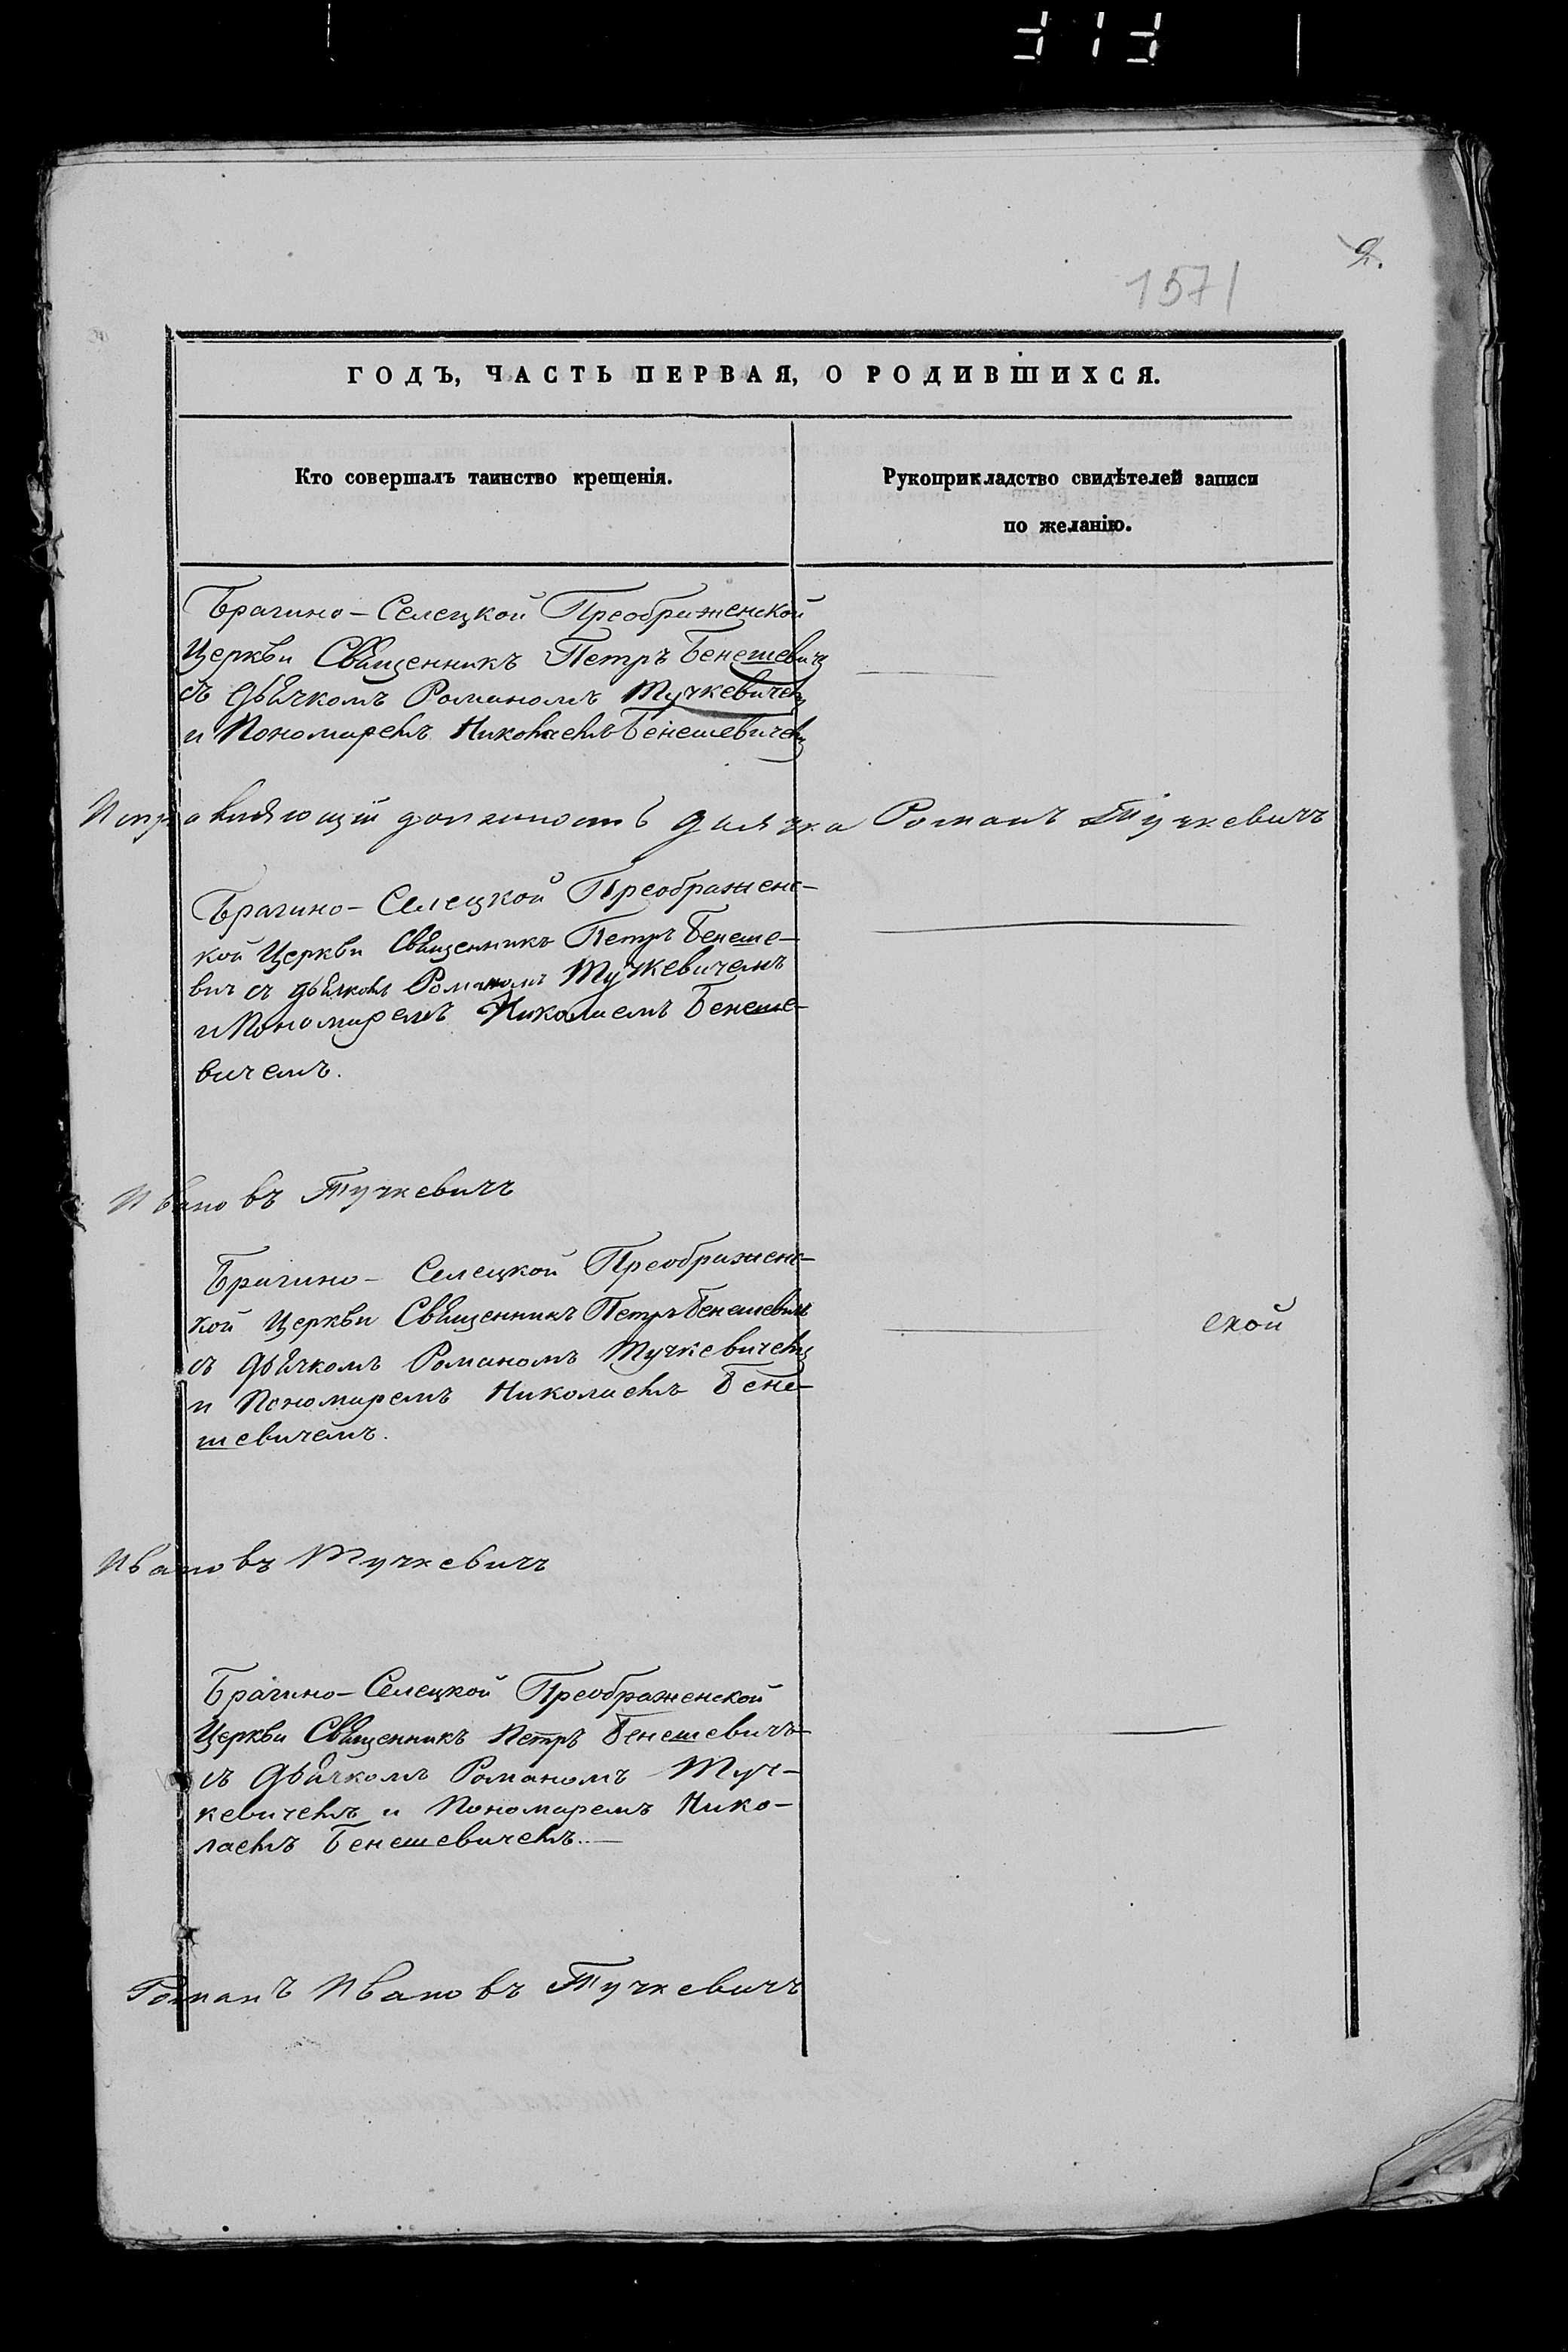 2.
1571
ГОДЪ, ЧАСТЬ ПЕРВАЯ, О РОДИВШИХСЯ.
Кто совершалъ таинство крещенія.
Рукоприкладство свидѣтелей записи
по желанію.
Брагино-Селецкой Преображенской
Церкви Священникъ Петръ Бенешевич
съ дьячкомъ Романомъ Тучкевичем
и Пономаремъ Николаемъ Бенешевичем
Исправляющій должность дьячка Романъ Тучкевичъ
Брагино-Селецкой Преображенс-
кой Церкви Священникъ Петръ Бенеше-
вич съ дьячком Романомъ Тучкевичемъ
и Пономаремъ Николаемъ Бенеше-
вичемъ.
Ивановъ Тучкевичъ
Брагино-Селецкой Преображенс-
кой Церкви Священникъ Петръ Бенешевич
съ дьячкомъ Романомъ Тучкевичем
и Пономаремъ Николаемъ Бене-
шевичемъ.
ской
Ивановъ Тучкевичъ
Брагино-Селецкой Преображенской
Церкви Священникъ Петръ Бенешевичъ
съ дьячкомъ Романомъ Туч-
кевичемъ и Пономаремъ Нико-
лаемъ Бенешевичемъ.—
Романъ Ивановъ Тучкевичъ